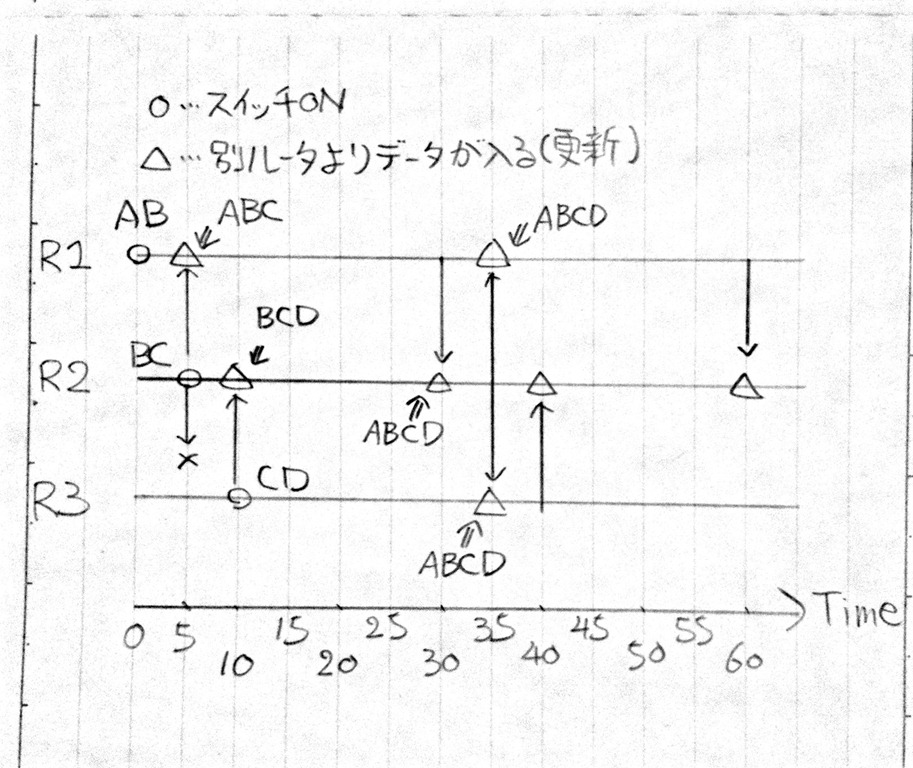 ○…スイッチON
△…別ルータよりデータが入る(更新)
AB
ABC
ABCD
R1
BCD
BC
R2
ABCD
×
CD
R3
ABCD
Time
0 5 10 15 20 25 30 35 40 45 50 55 60